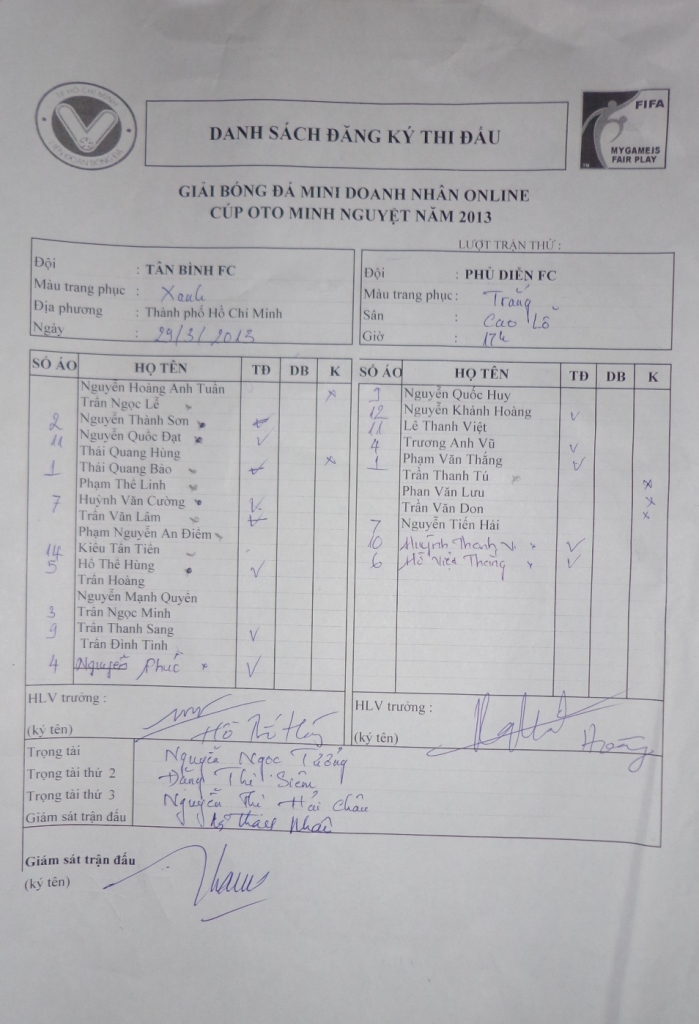 TP HỒ CHÍ MINH
FIFA
MY GAME IS
FAIR PLAY
DANH SÁCH ĐĂNG KÝ THI ĐẤU
GIẢI BÓNG ĐÁ MINI DOANH NHÂN ONLINE
CÚP OTO MINH NGUYỆT NĂM 2013
LƯỢT TRẬN THỨ :
Đội : TÂN BÌNH FC
Màu trang phục : Xanh
Địa phương : Thành phố Hồ Chí Minh
Ngày : 29/3/2013
Đội : PHÚ DIỄN FC
Màu trang phục : Trắng
Sân : Cao Lỗ
Giờ : 17h
SỐ ÁO HỌ TÊN TĐ DB K
Nguyễn Hoàng Anh Tuấn x
Trần Ngọc Lễ
2 Nguyễn Thành Sơn
11 Nguyễn Quốc Đạt
Thái Quang Hùng x
1 Thái Quang Bảo
Phạm Thế Linh
7 Huỳnh Văn Cường
Trần Văn Lâm
Phạm Nguyễn An Điềm
14 Kiều Tấn Tiên
5 Hồ Thế Hùng
Trần Hoàng
Nguyễn Mạnh Quyên
3 Trần Ngọc Minh
9 Trần Thanh Sang
Trần Đình Tình
4 Nguyễn Phúc
SỐ ÁO HỌ TÊN TĐ DB K
Nguyễn Quốc Huy
12 Nguyễn Khánh Hoàng
11 Lê Thanh Việt
4 Trương Anh Vũ
1 Phạm Văn Thắng
Trần Thanh Tú x
Phan Văn Lưu x
Trần Văn Don x
7 Nguyễn Tiến Hải
10 Huỳnh Thanh
6 Hồ Việt Thắng
HLV trưởng :
(ký tên)
HLV trưởng :
(ký tên) Hoàng
Trọng tài Nguyễn Ngọc Tưởng
Trọng tài thứ 2 Đặng Thị Siêm
Trọng tài thứ 3 Nguyễn Thị Hải Châu
Giám sát trận đấu
Giám sát trận đấu
(ký tên)